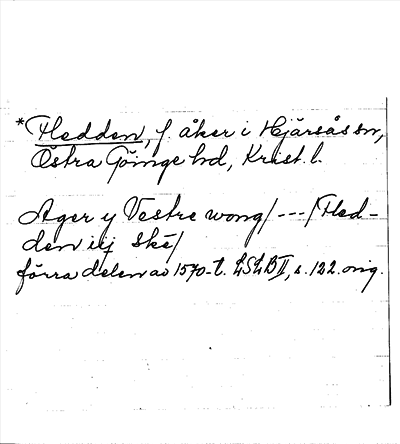 *Hedden, f. åker i Hjärsås sn,
Östra Göinge hd, Krist. l.
Ager y Vestre wong/---/Hed-
den iij skē/
förra delen av 1570-t. LSLB II, s. 122. orig.